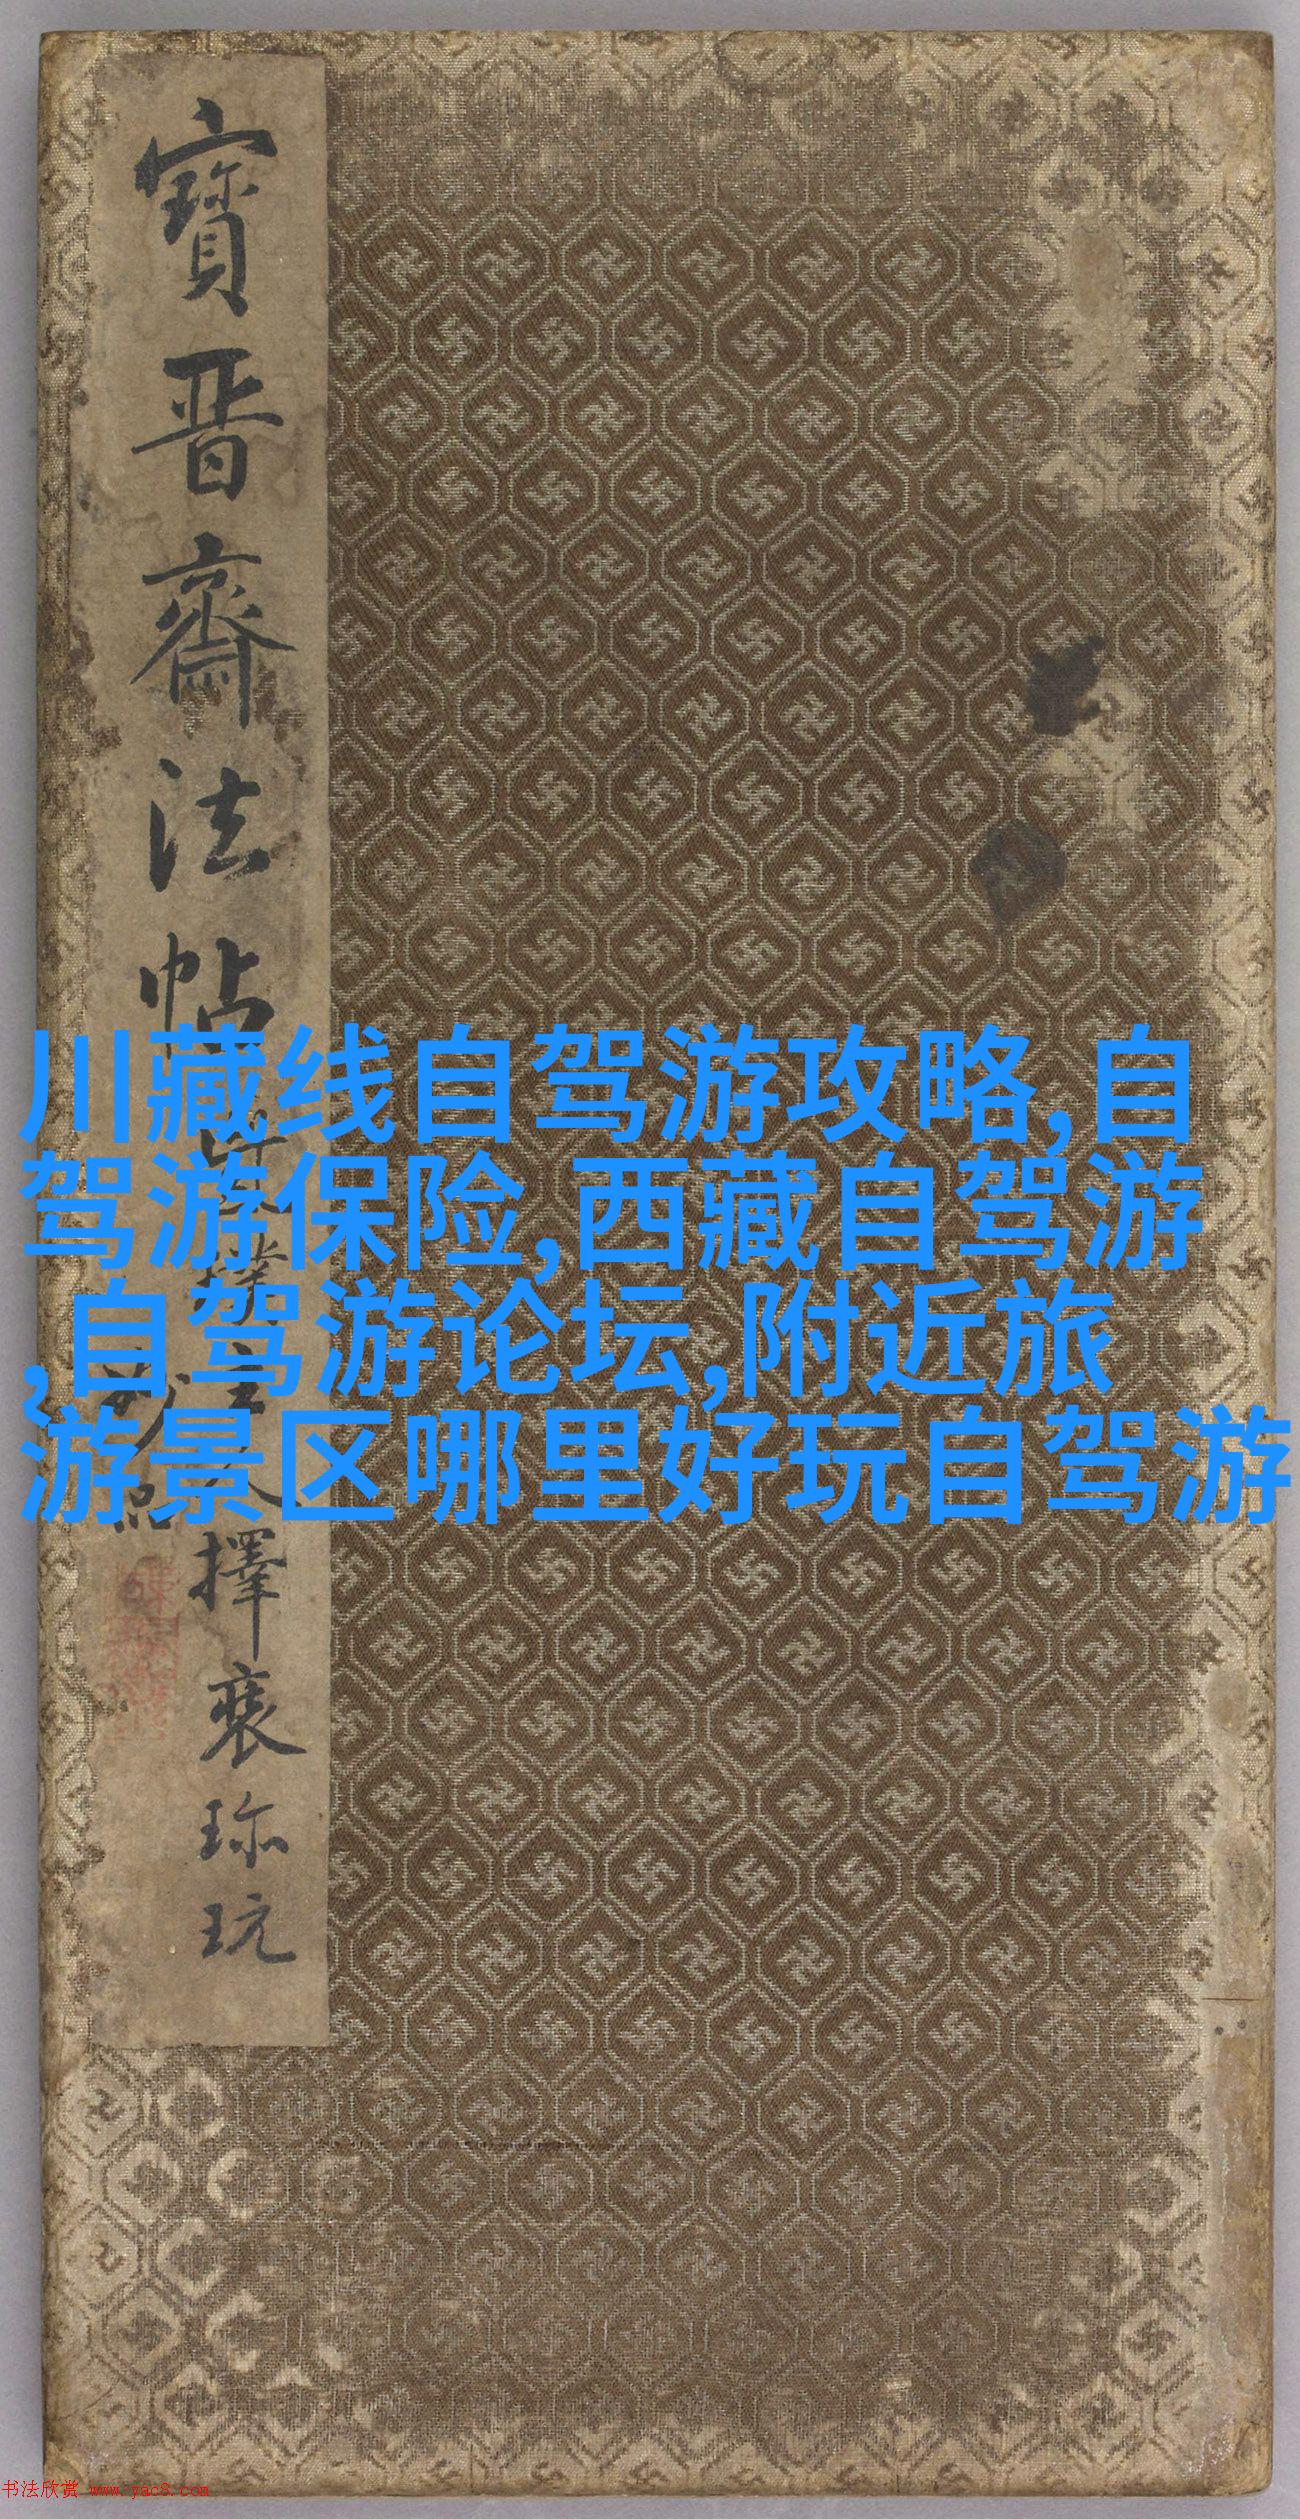 寶晋齋法帖
擇褱珎玩
川藏线自驾游攻略,自
驾游保险,西藏自驾游
,自驾游论坛,附近旅
游景区哪里好玩自驾游
书法欣赏 www.yac8.com